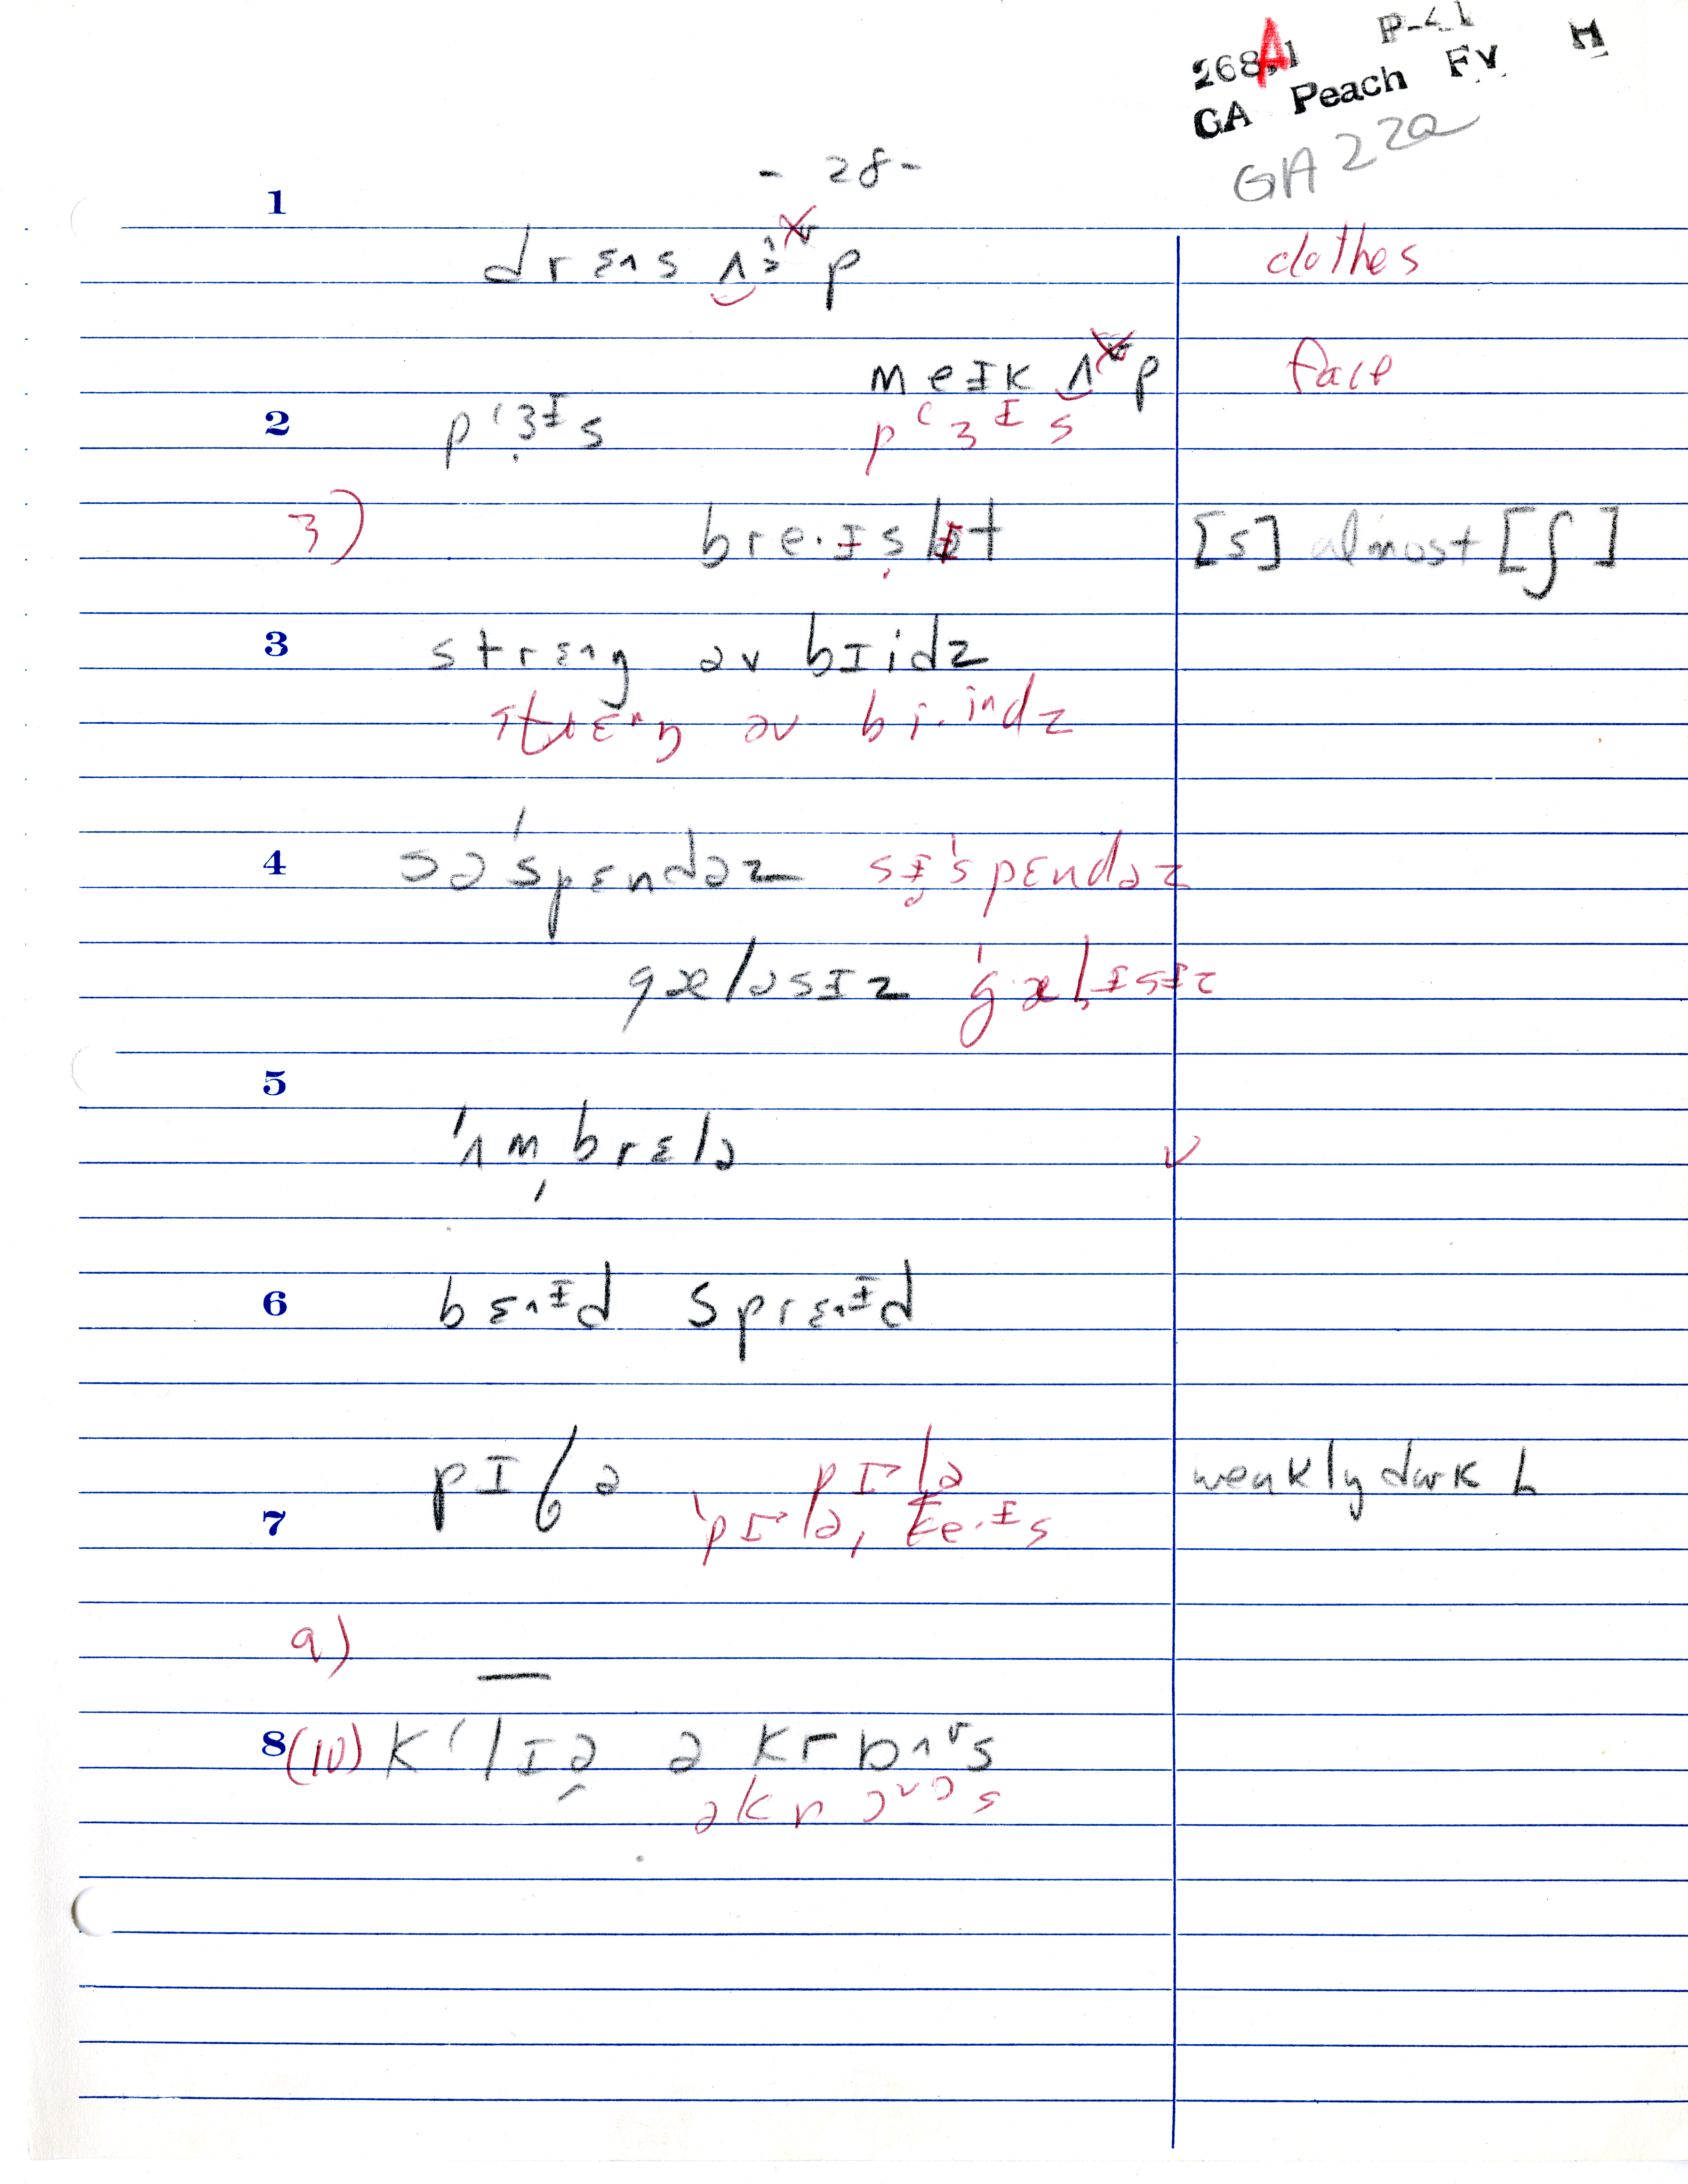 268A1 P-41
GA Peach FV M
GA 22a
- 28 -
1
drɛ^s ʌ̯ɜp clothes
meɪk ʌ̯p face
2 pʻɜᶦs pʻɜᶦs
3) bre·ɪslɪt [s] almost [ʃ]
3 strɛ^ŋ əv bɪidz
strɛ^ŋ əv bi·iⁿdz
4 səˈspɛndəz sɪˈspɛndəz
gæləsɪz ˈgælɪsɪz
5
ˈʌmˌbrɛlə ✓
6 bɛ^ᶦd sprɛ^ᶦd
pɪlə pɪlə weakly dark L
7 ˈpɪləˌke·ᶦs
9) —
8 (10) kʻlɪə əkrɒ^ᵛs
əkrɔᵛɔs